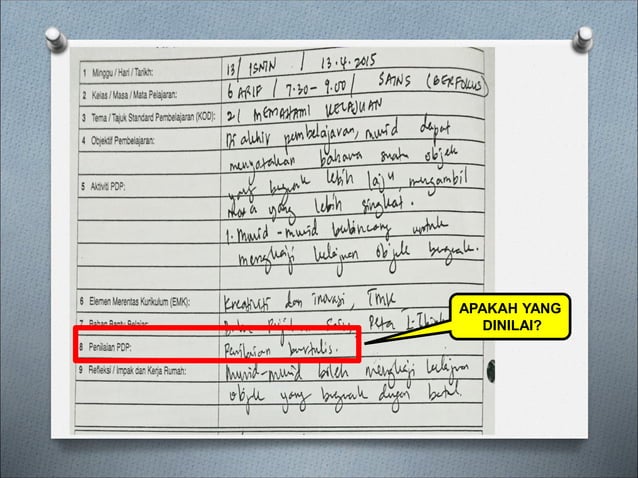 1 Minggu / Hari / Tarikh: 13 / ISNIN / 13.4.2015
2 Kelas / Masa / Mata Pelajaran: 6 ARIF / 7.30 - 9.00 / SAINS (BERFOKUS)
3 Tema / Tajuk Standard Pembelajaran (KOD): 2.1 MEMAHAMI KELAJUAN
4 Objektif Pembelajaran: Di akhir pembelajaran, murid dapat
menyatakan bahawa suatu objek
5 Aktiviti PDP: yang bergerak lebih laju mengambil
masa yang lebih singkat.
1. Murid-murid berbincang untuk
mengkaji kelajuan objek bergerak.
6 Elemen Merentas Kurikulum (EMK): Kreativiti dan inovasi, TMK
7 Bahan Bantu Belajar: Sains, Peta I-Think
8 Penilaian PDP: Penilaian bertulis.
9 Refleksi / Impak dan Kerja Rumah: Murid-murid boleh mengkaji kelajuan
objek yang bergerak dengan betul.
APAKAH YANG
DINILAI?